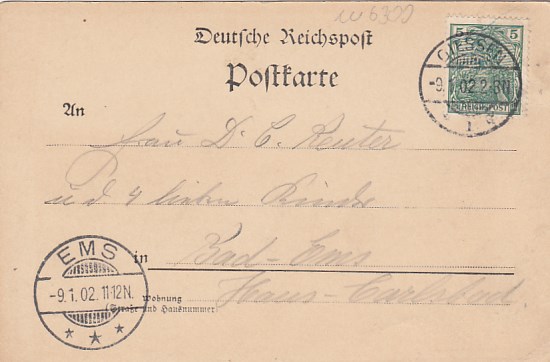 W 6300
Deutsche Reichspost
Postkarte
5 5
REICHSPOST
GIESSEN
-9.1.02.2-3N
1
An
Frau Dr. C. Reuter
u d 4 lieben Kinder
EMS
-9.1.02.11-12N.
in
Bad-Ems
Wohnung
(Straße und Hausnummer)
Haus-Carlsbad.